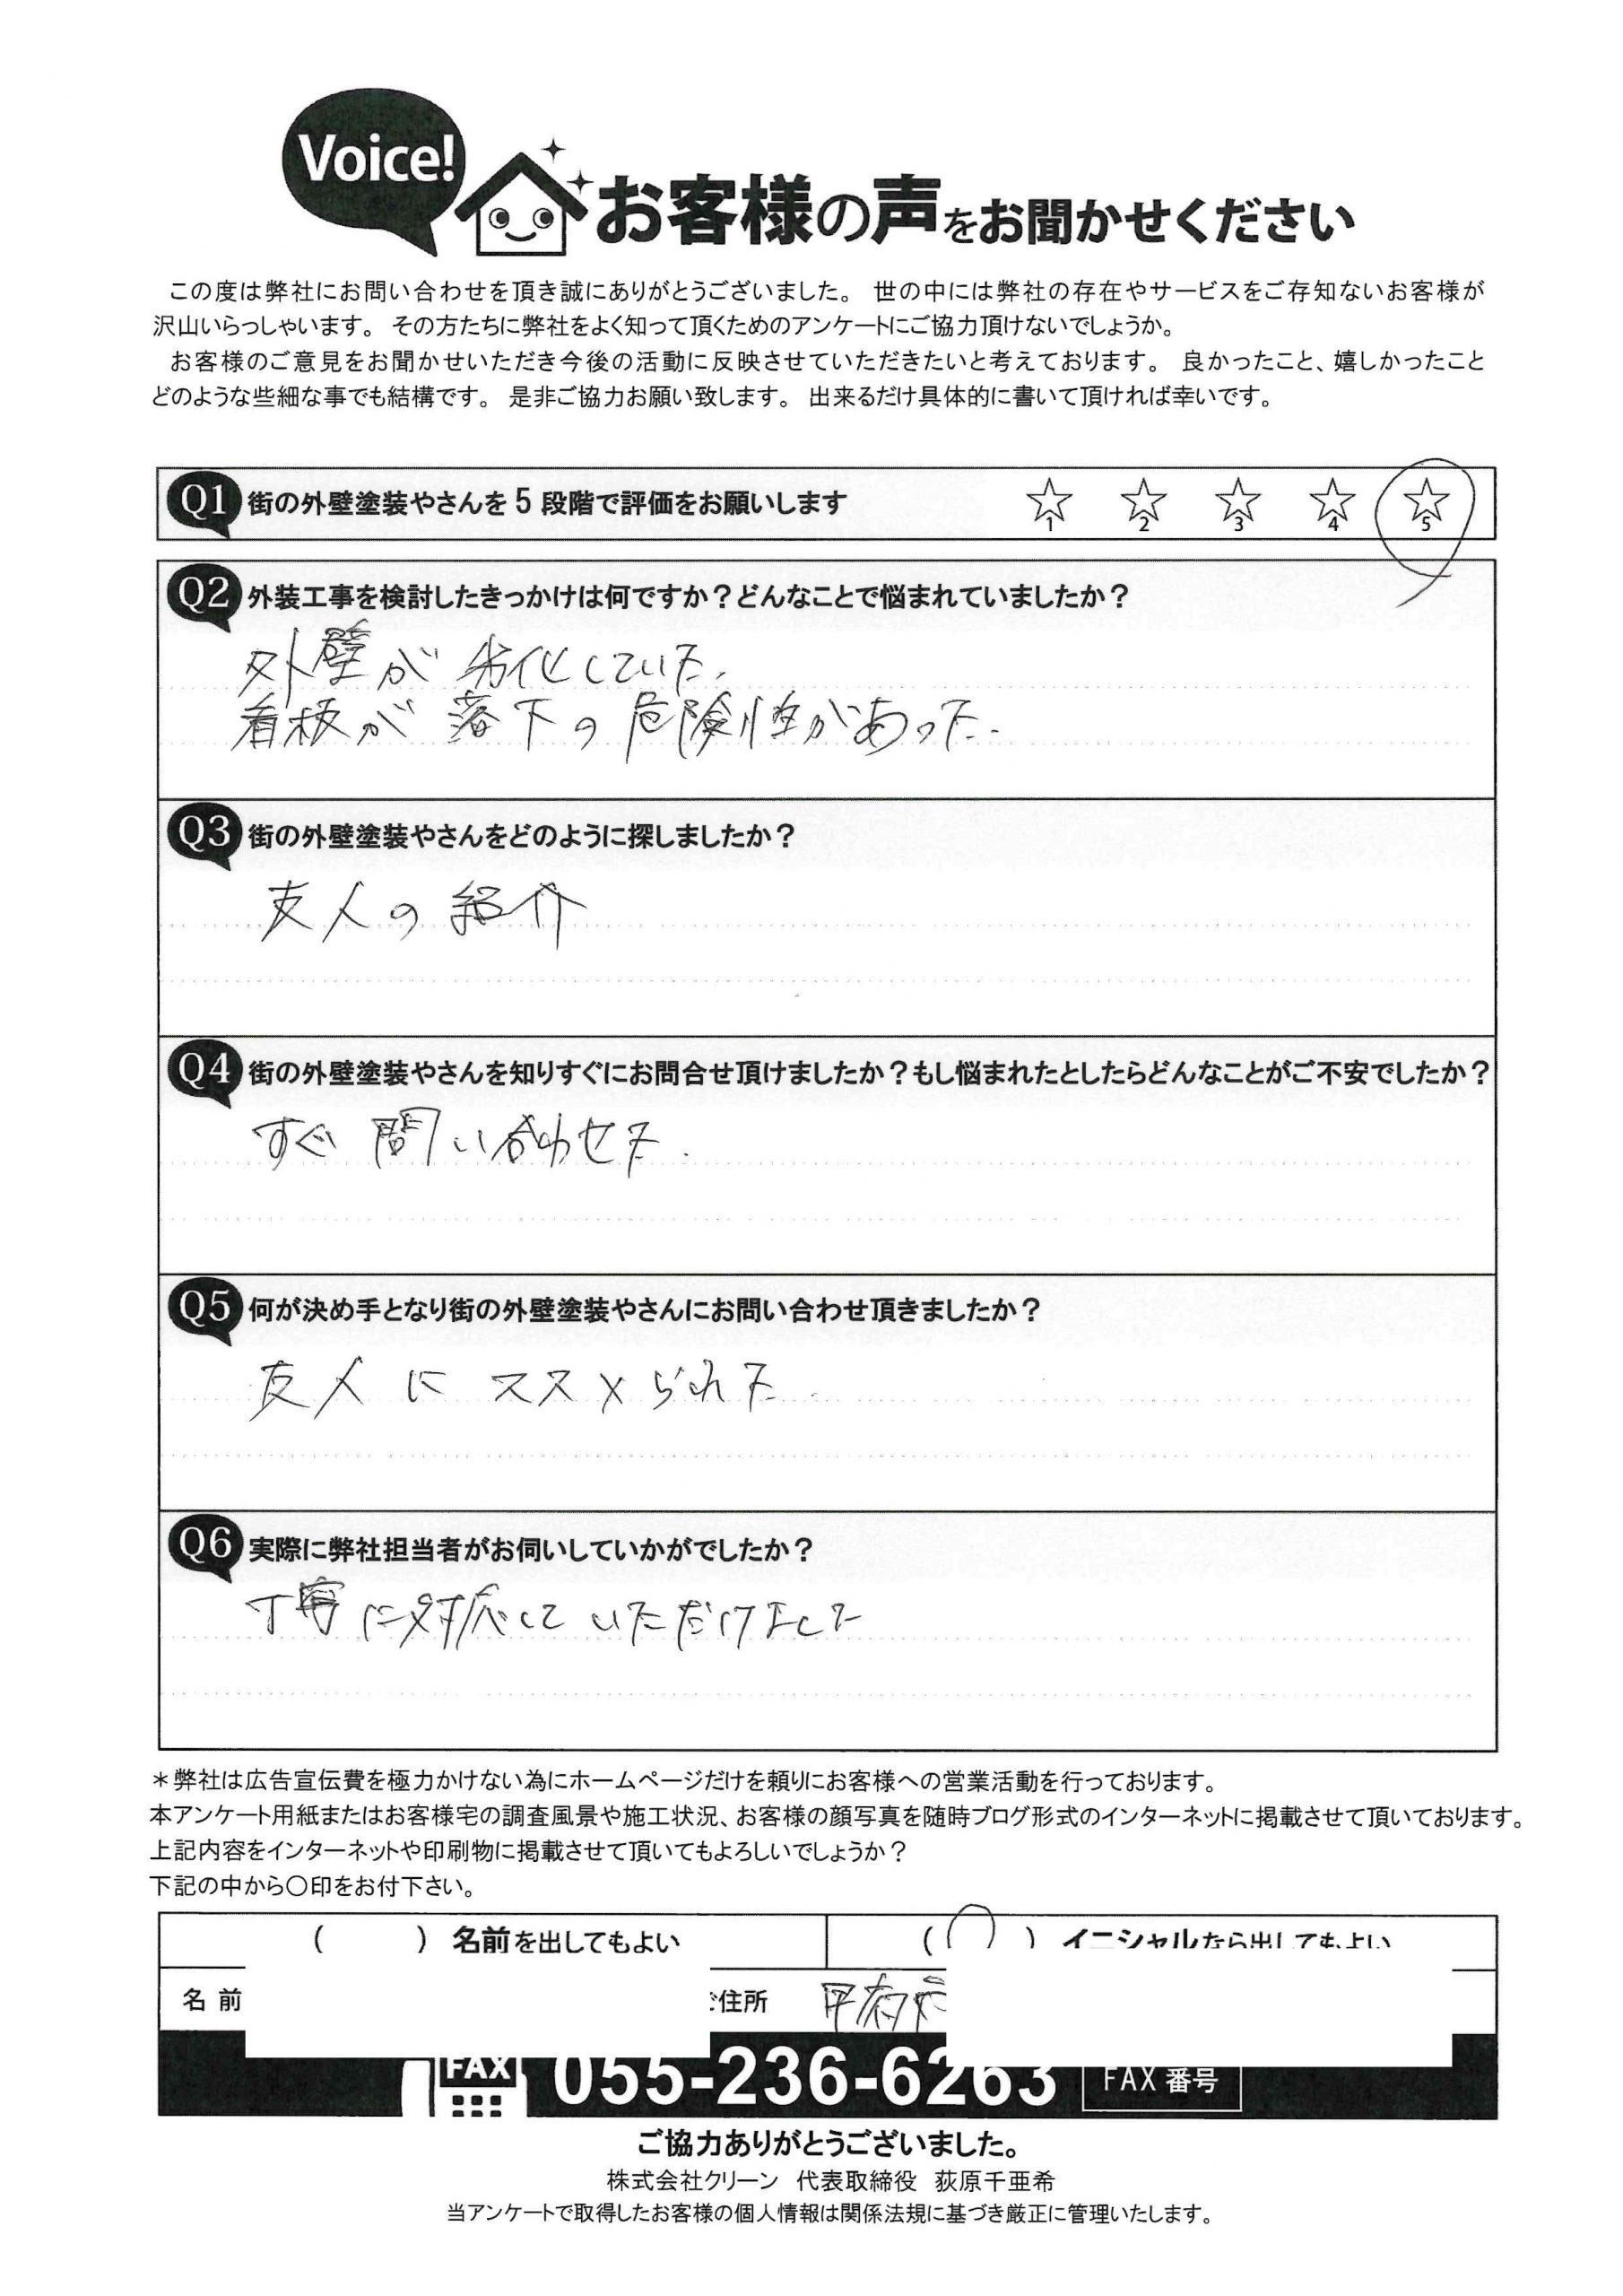 Voice!
お客様の声をお聞かせください
この度は弊社にお問い合わせを頂き誠にありがとうございました。 世の中には弊社の存在やサービスをご存知ないお客様が
沢山いらっしゃいます。 その方たちに弊社をよく知って頂くためのアンケートにご協力頂けないでしょうか。
お客様のご意見をお聞かせいただき今後の活動に反映させていただきたいと考えております。 良かったこと、嬉しかったこと
どのような些細な事でも結構です。 是非ご協力お願い致します。 出来るだけ具体的に書いて頂ければ幸いです。
Q1 街の外壁塗装やさんを5段階で評価をお願いします ☆1 ☆2 ☆3 ☆4 ☆5
Q2 外装工事を検討したきっかけは何ですか？どんなことで悩まれていましたか？
外壁が劣化していた.
看板が落下の危険性があった.
Q3 街の外壁塗装やさんをどのように探しましたか？
友人の紹介
Q4 街の外壁塗装やさんを知りすぐにお問合せ頂けましたか？もし悩まれたとしたらどんなことがご不安でしたか？
すぐ問い合わせた.
Q5 何が決め手となり街の外壁塗装やさんにお問い合わせ頂きましたか？
友人にススメられた.
Q6 実際に弊社担当者がお伺いしていかがでしたか？
丁寧に対応していただけました
＊弊社は広告宣伝費を極力かけない為にホームページだけを頼りにお客様への営業活動を行っております。
本アンケート用紙またはお客様宅の調査風景や施工状況、お客様の顔写真を随時ブログ形式のインターネットに掲載させて頂いております。
上記内容をインターネットや印刷物に掲載させて頂いてもよろしいでしょうか？
下記の中から〇印をお付下さい。
（　　　）名前を出してもよい （〇　）イニシャルなら出してもよい
名前 ご住所 甲府市
FAX 055-236-6263 FAX番号
ご協力ありがとうございました。
株式会社クリーン 代表取締役 荻原千亜希
当アンケートで取得したお客様の個人情報は関係法規に基づき厳正に管理いたします。